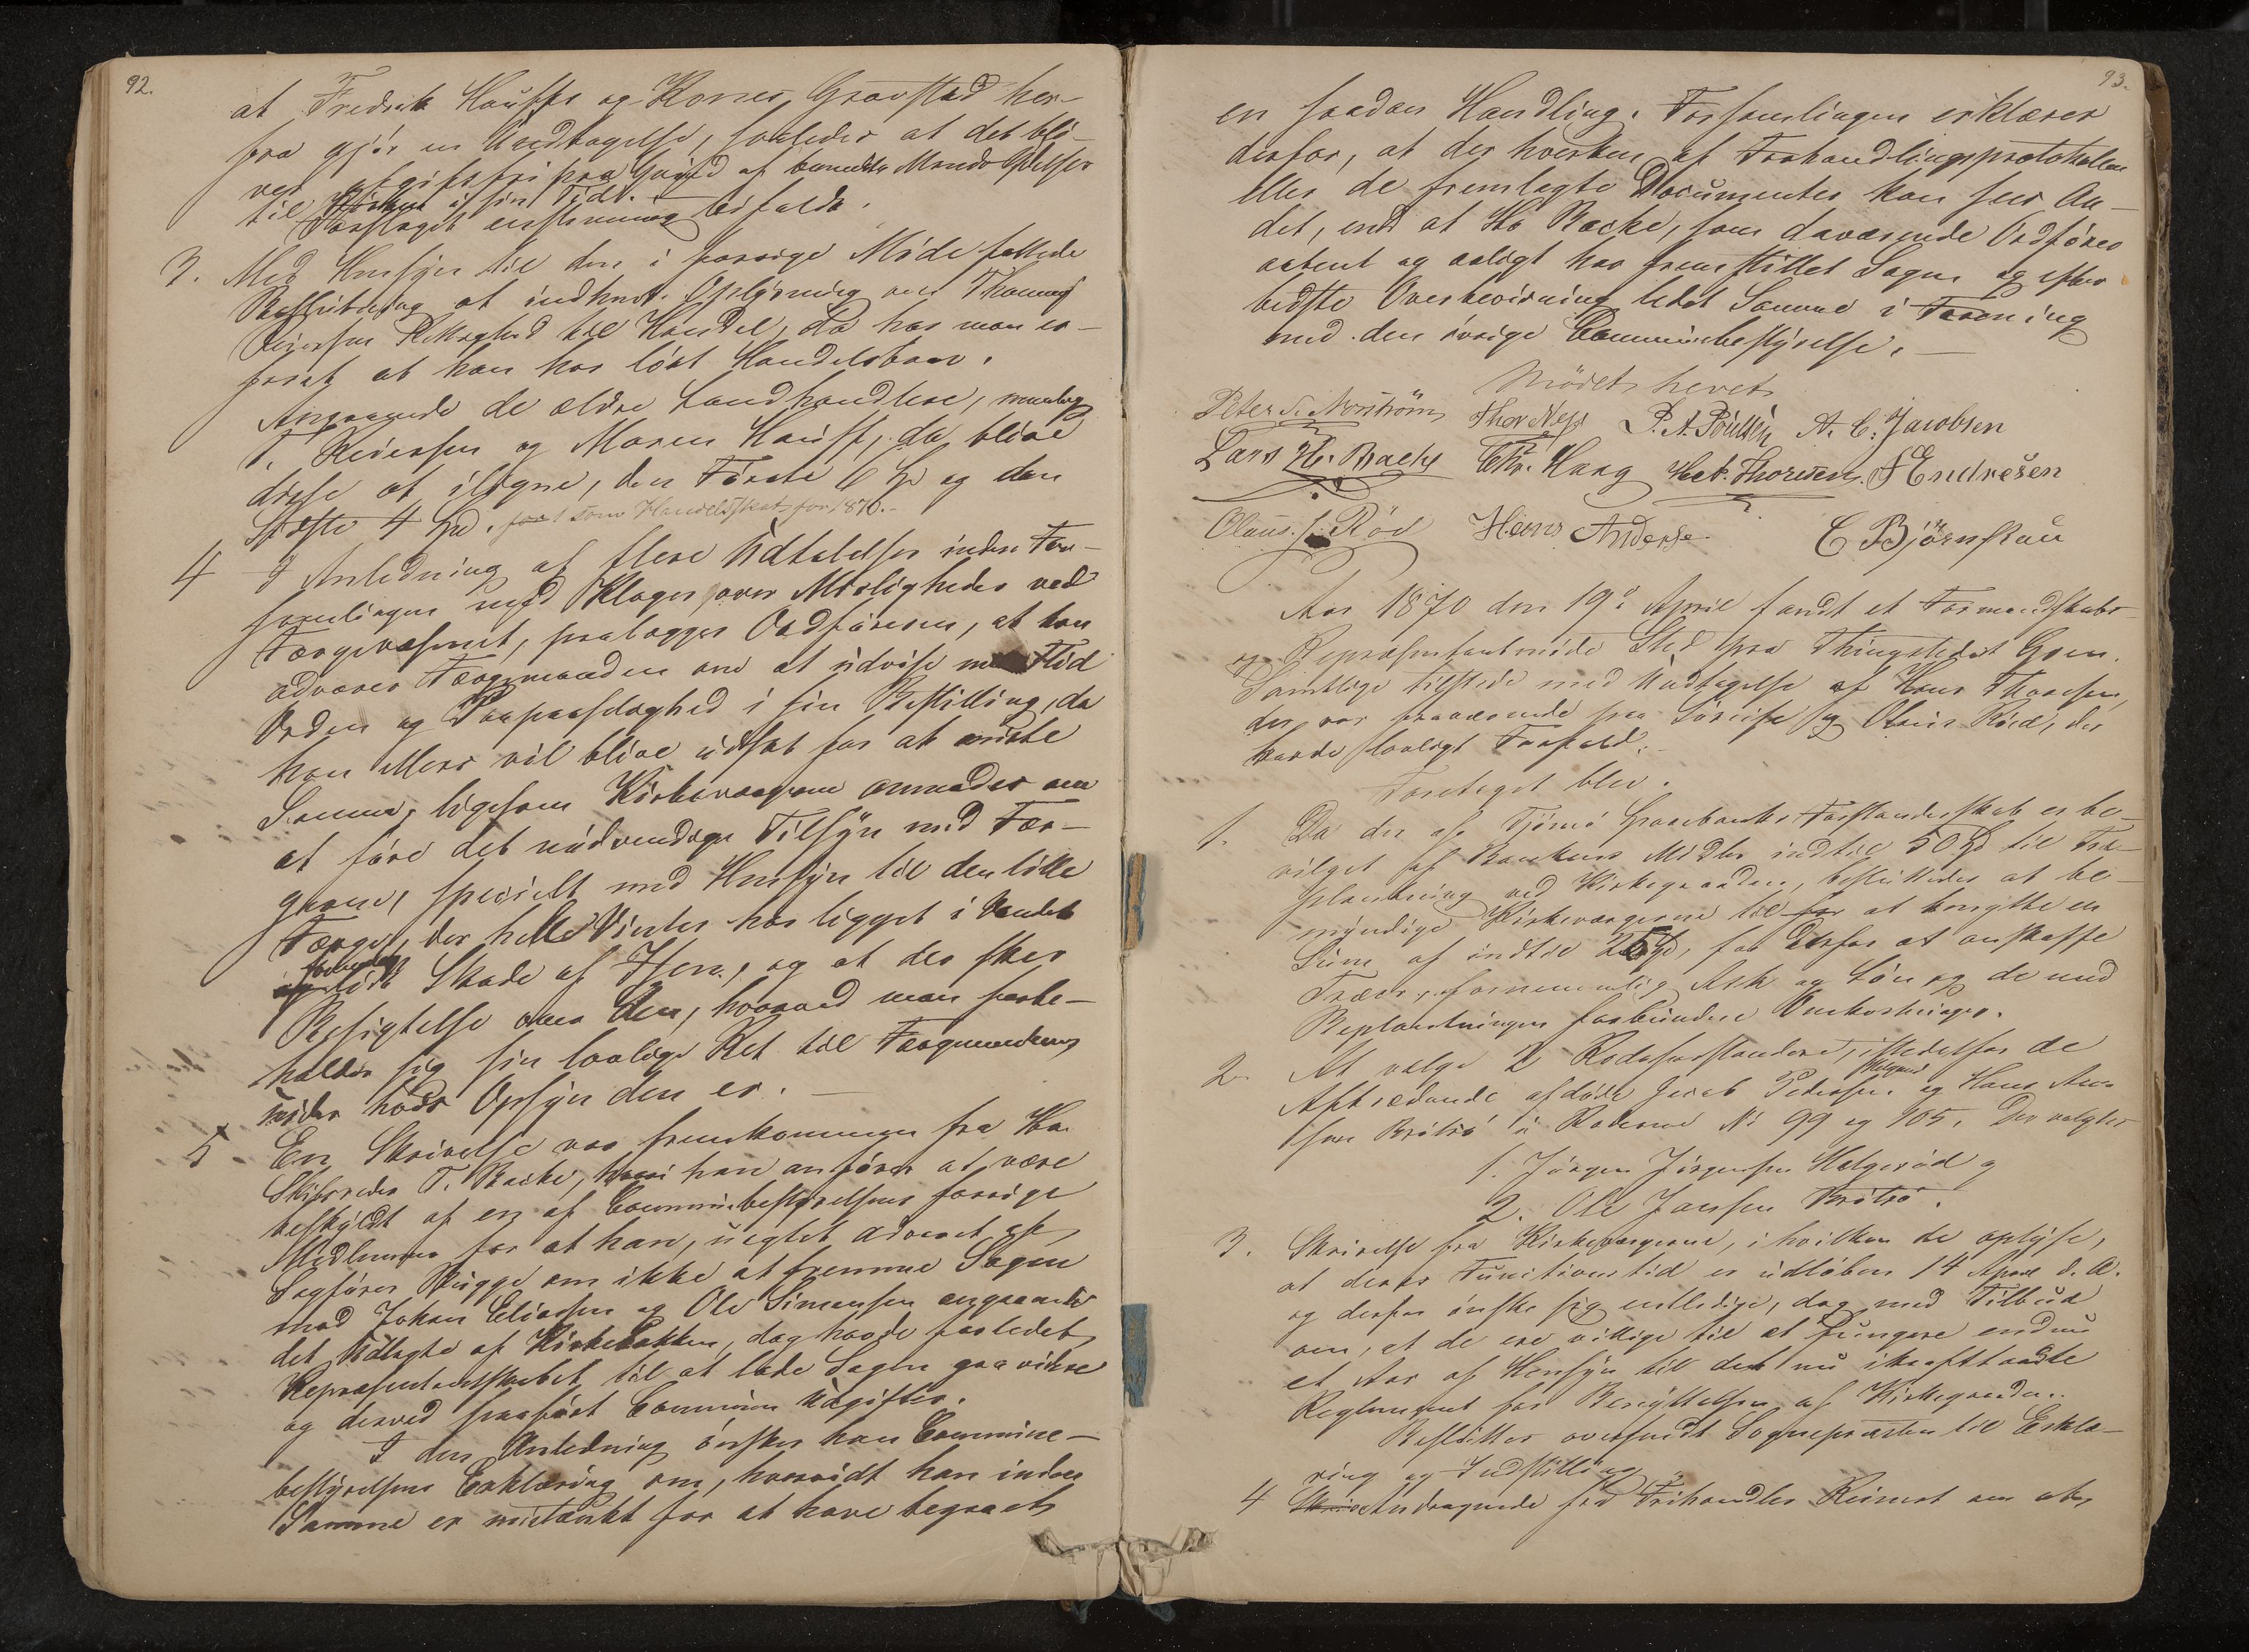 92.
at Fredrik Hauffs og Kones Gravsted her-
fra gjør en Undtagelse, saaledes at det bli-
ver afgiftsfri paa Grund af bemeldte Mands Ydelser
til Kirken i sin Tid. —
Forslaget eenstemmig bifaldt.
3. Med Hensyn til den i forrige Møde fattede
Beslutning at indhente Oplysning om Thomas
Reiersens Rettighed til Handel, da har man er-
faret at han har løst Handelsbrev.
Angaaende de ældre Landhandlere, nemlig
T. Reiersen og Maren Hauff, da blive
disse at iligne, den Første 6 Spd og den
Sidste 4 Spd. for 1 som Handelsskat for 1870.-
4 I Anledning af flere Udtalelser inden For-
samlingen med Klager over Misligheder ved
Færgevæsenet, paalægges Ordføreren, at han
advarer Færgemanden om at udvise mere Flid
Orden og Paapasselighed i sin Bestilling, da
han ellers vil blive udsat for at miste
Samme, ligesom Kirkeværgerne anmodes om
at føre det nødvendige Tilsyn med Fær-
gerne, specielt med Hensyn til den lille
Færge, der hele Vinter har ligget i Vandet
lidt Skade af Isen, og at der skeer
Besigtelse over den, hvorved man forbe-
holder sig sin lovlige Ret til Færgemanden
under hvis Opsyn den er. —
5 En Skrivelse var fremkommen fra Hr.
Skibsreder T. Backe, hvori han anfører at være
beskyldt af en af Communebestyrelsens forrige
Medlemmer for at han, uagtet advaret af
Sagfører Bugge om ikke at fremme Sagen
mod Johan Eliassen og Ole Simensen angaaende
det Udlagte af Kirkebakken, dog havde forledet
Repræsentantskabet til at lade Sagen gaa videre
og derved paaført Communen Udgifter.
I den Anledning ønsker han Commune-
bestyrelsens Erklæring om, hvorvidt han inden
Samme er mistænkt for at have begaaet
93.
en saadan Handling. Forsamlingen erklærer
derfor, at der hverken af Forhandlingsprotokollen
eller de fremlagte Documenter kan sees An-
det, end at Hr Backe, som daværende Ordfører
aabent og ærligt har fremstillet Sagen og efter
bedste Overbeviisning ledet Samme i Forening
med den øvrige Communebestyrelse. —
Mødet hevet
Peter N. Norstrøm Thor Næss P. A. Poulsen A. C. Jacobsen
Lars H. Backe Chr. Haag Thoresen. J Endresen
Olaus J. Rød Hans Anderse C Bjørnskau
Aar 1870 den 19de April fandt et Formandskabs
og Repræsentantmøde Sted paa Thingstedet Goen.
Samtlige tilstede med Undtagelse af Hans Thoresen,
der var fraværende paa Søreise og Olaus Røed, der
havde lovligt Forfald.
Foretaget blev.
1. Da der af Tjømø Sparebanks Forstanderskab er be-
vilget af Bankens Midler indtil 50 Spd til Træ-
plantning ved Kirkegaarden, besluttedes at be-
myndige Kirkeværgerne til at benytte en
Sum af indtil 25 Spd, for derfor at anskaffe
Træer, fornemmelig Ask og Løn og de med
Beplantningen forbundne Omkostninger.
2. At vælge 2 Rodeforstandere, istedetfor de
Aftrædende afdøde Jacob Pedersen og Hans An-
sen Brøtsø i Roderne No 99 og 105. Der valgtes
1. Jørgen Jørgensen Helgerød og
2. Ole Jansen Brøtsø.
3. Skrivelse fra Kirkeværgerne, i hvilken de oplyse,
at deres Functionstid er udløben 14 April d. A.
og derfor ønske sig entledige, dog med Tilbud
om, at de ere villige til at fungere endnu
et Aar af Hensyn til det nu ikrafttraadte
Reglement for Benyttelsen af Kirkegaarden.
Besluttet oversendt Sognepræsten til Erklæ-
ring og Indstilling
4 Andragende fra Frihandler Reinert om at